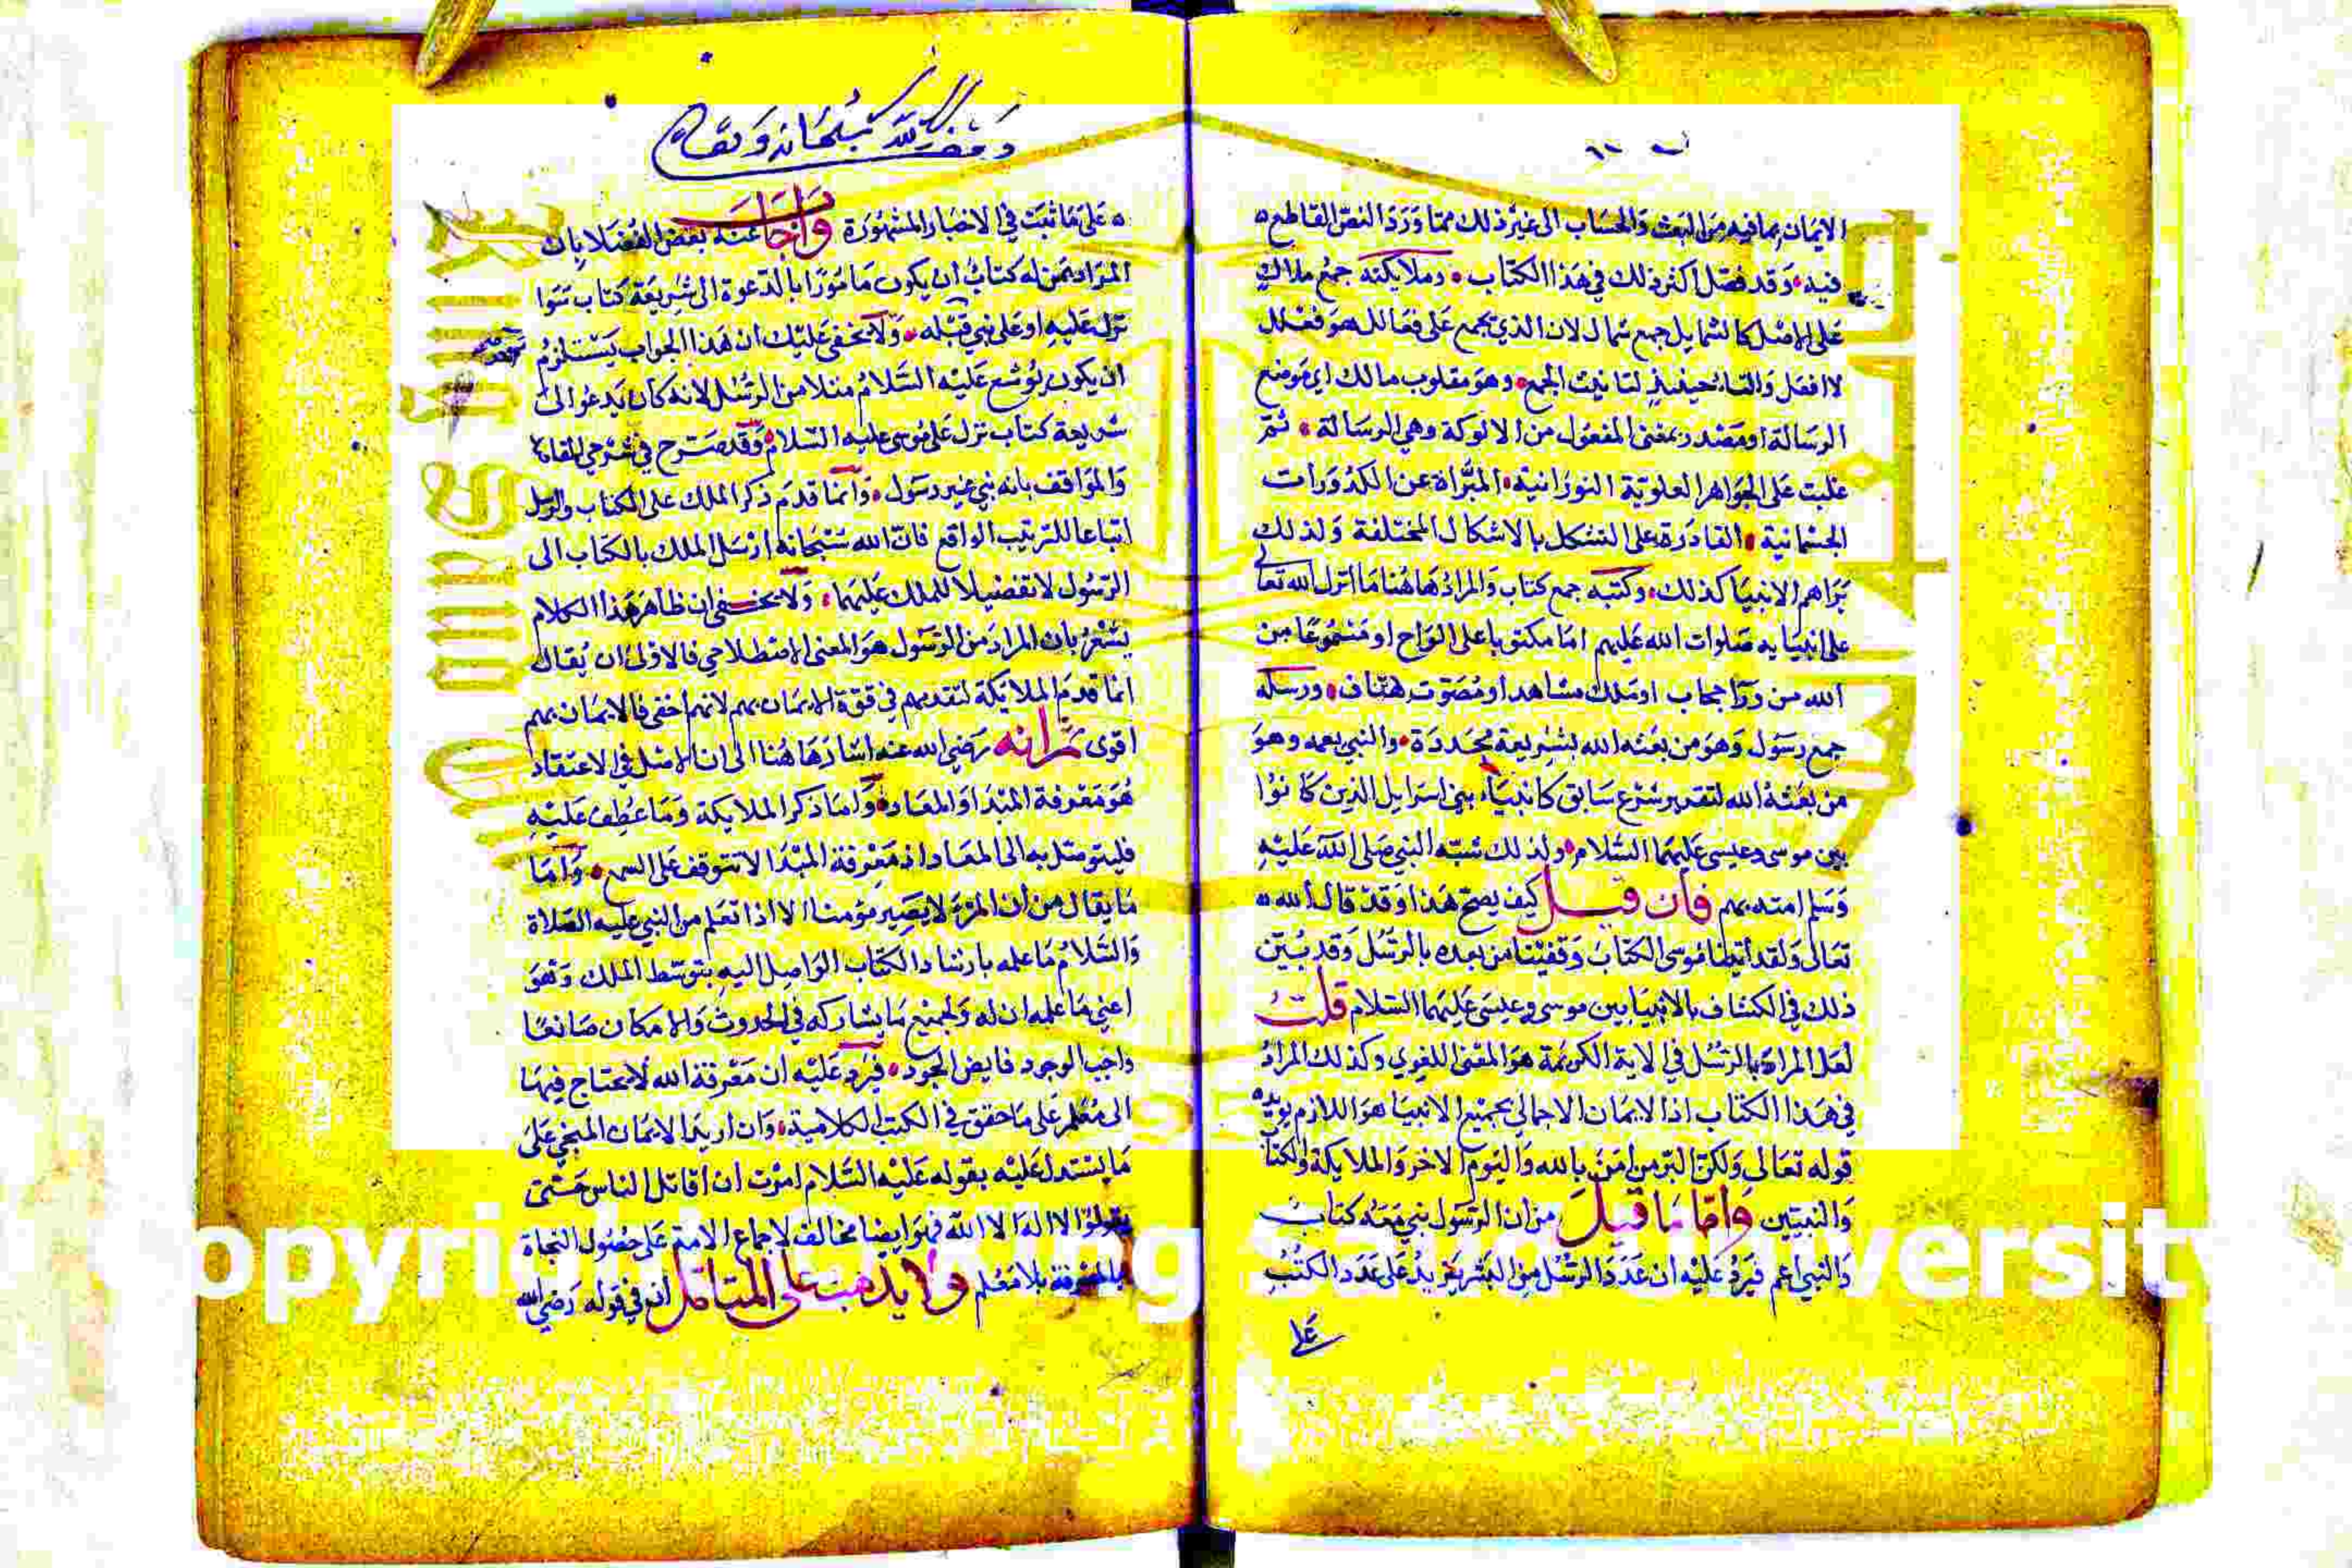 الايمان بما فيه من البعث والحساب الى غير ذلك مما ورد النص القاطع
فيه وقد فصل اكثر ذلك في هذا الكتاب وملايكته جمع ملاك
على الاصل كالشمايل جمع شمال لان الذي يجمع على فعالل هو فعلل
لا افعل والتا حينئذ لتانيث الجمع وهو مقلوب مالك اي موضع
الرسالة او مصدر بمعنى المفعول من الالوكة وهي الرسالة ثم
غلبت على الجواهر العلوية النورانية المبراة عن الكدورات
الجسمانية القادرة على التشكل بالاشكال المختلفة ولذلك
تراهم الانبيا كذلك وكتبه جمع كتاب والمراد هاهنا ما انزل الله تعالى
على انبيايه صلوات الله عليهم اما مكتوبا على الواح او مسموعا من
الله من ورا حجاب او ملك مشاهد او مصوت هتاف ورسله
جمع رسول وهو من بعثه الله بشريعة مجددة والنبي يعمه وهو
من بعثه الله لتقرير شرع سابق كانبياء بني اسرايل الذين كانوا
بين موسى وعيسى عليهما السلام ولذلك شبه النبي صلى الله عليه
وسلم امته بهم فان قيل كيف يصح هذا وقد قال الله
تعالى ولقد اتينا موسى الكتاب وقفينا من بعده بالرسل وقد بين
ذلك في الكشاف بالانبيا بين موسى وعيسى عليهما السلام قلت
لعل المراد بالرسل في الاية الكريمة هو المعنى اللغوي وكذلك المراد
في هذا الكتاب اذ الايمان الاجمالي بجميع الانبيا هو اللازم يؤيده
قوله تعالى ولكن البر من امن بالله واليوم الاخر والملايكة والكتاب
والنبيين واما ما قيل من ان الرسول نبي معه كتاب
والنبي اعم فيرد عليه ان عدد الرسل من البشر يزيد على عدد الكتب
على
وقف لله سبحانه وتعالى
على ما ثبت في الاخبار المشهورة واجاب عنه بعض الفضلا بان
المراد بمن له كتاب ان يكون مامورا بالدعوة الى شريعة كتاب سوا
نزل عليه او على نبي قبله ولا يخفى عليك ان هذا الجواب يستلزم
ان يكون يوشع عليه السلام مثلا من الرسل لانه كان يدعو الى
شريعة كتاب نزل على موسى عليه السلام وقد صرح في شرحي المقاصد
والمواقف بانه نبي غير رسول وانما قدم ذكر الملك على الكتاب والرسل
اتباعا للترتيب الواقع فان الله سبحانه ارسل الملك بالكتاب الى
الرسول لا تفضيلا للملك عليهما ولا يخفى ان ظاهر هذا الكلام
يشعر بان المراد من الرسول هو المعنى الاصطلاحي فالاولى ان يقال
انما قدم الملايكة لتقديمهم في قوة الايمان بهم لانهم اخفى فالايمان بهم
اقوى ثم انه رضي الله عنه اشار هاهنا الى ان الاصل في الاعتقاد
هو معرفة المبدا والمعاد واما ذكر الملايكة وما عطف عليه
فليتوصل به الى المعاد اذ معرفة المبدا لا تتوقف على السمع واما
ما يقال من ان المرء لا يصير مومنا الا اذا تعلم من النبي عليه الصلاة
والسلام ما علمه بارشاد الكتاب الواصل اليه بتوسط الملك وهو
اعني ما علمه ان له ولجميع ما يشاركه في الحدوث والامكان صانعا
واجب الوجود فايض الجود فيرد عليه ان معرفة الله لا يحتاج فيها
الى معلم على ما حقق في الكتب الكلامية وان اريد الايمان المنجي على
ما يستدل عليه بقوله عليه السلام امرت ان اقاتل الناس حتى
يقولوا لا اله الا الله فهو ايضا مخالف لاجماع الامة على حصول النجاة
بالمعرفة بلا معلم ولا يذهب على المتامل ان في قوله رضي الله